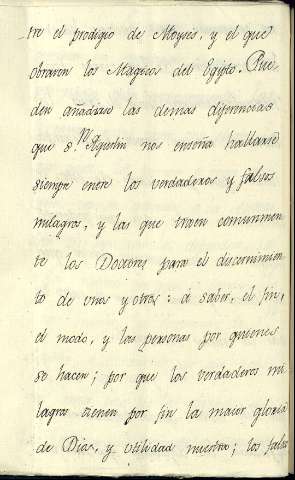 tre el prodigio de Moyses, y el que
obraron los Magicos del Egipto. Pue
den añadirse las demas diferencias
que S.n Agustin nos enseña hallarse
siempre entre los verdaderos y falsos
milagros, y las que traen comunmen
te los Doctores para el discernimien
to de unos y otros: á saber, el fin,
el modo, y las personas por quienes
se hacen; por que los verdaderos mi
lagros tienen por fin la maior gloria
de Dios, y utilidad nuestra; los falsos